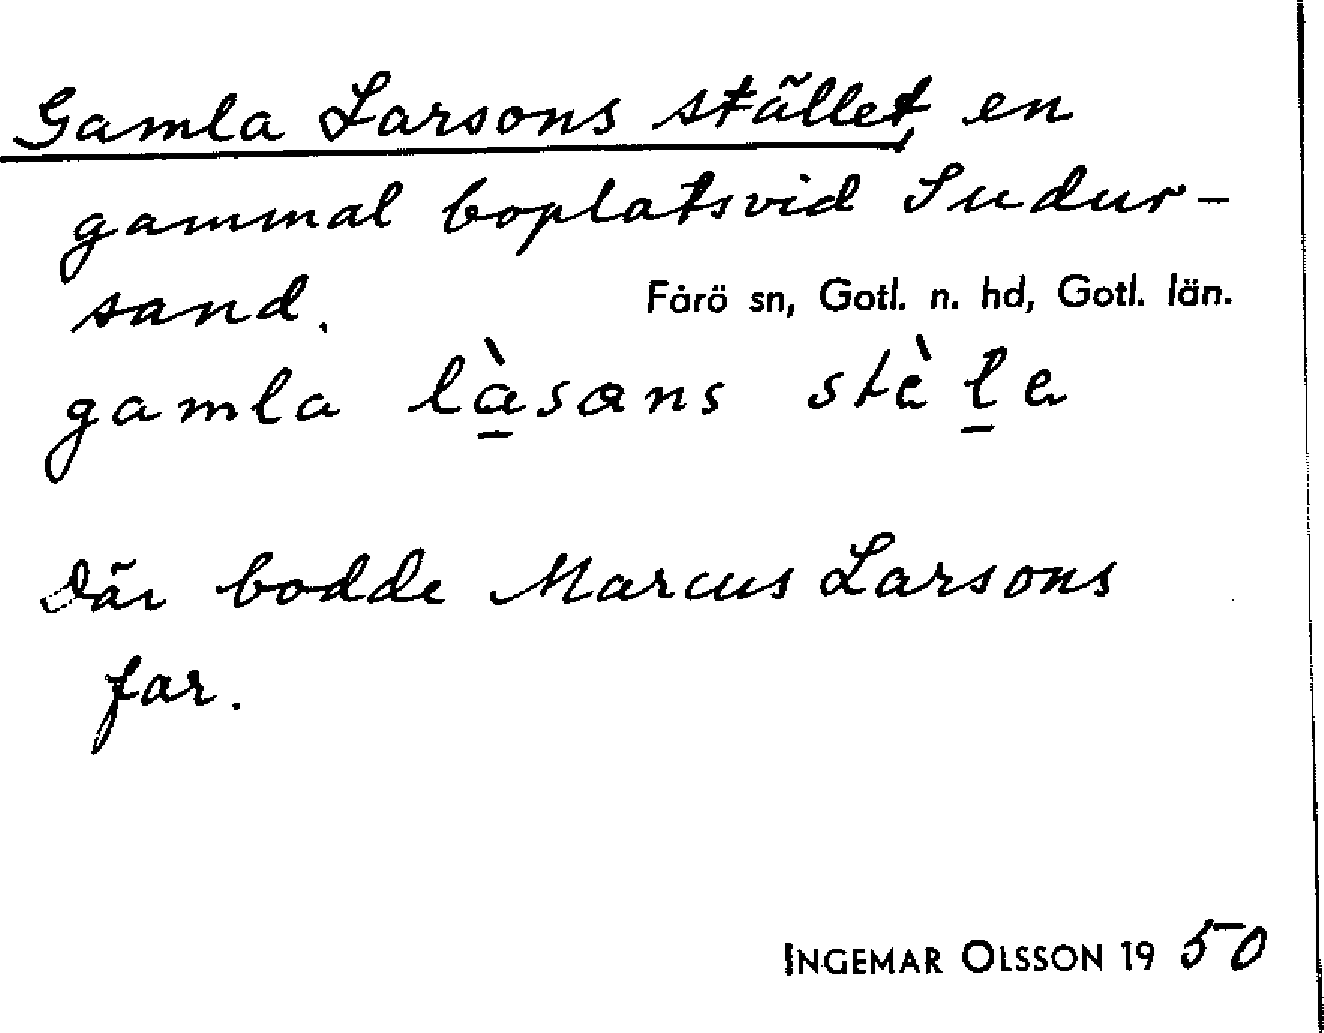 Gamla Larsons stället, en
gammal boplats vid Sudur-
sand.
Fårö sn, Gotl. n. hd, Gotl. län.
gamla lὰ̱sαns stὲḻe
Där bodde Marcus Larsons
far.
INGEMAR OLSSON 1950